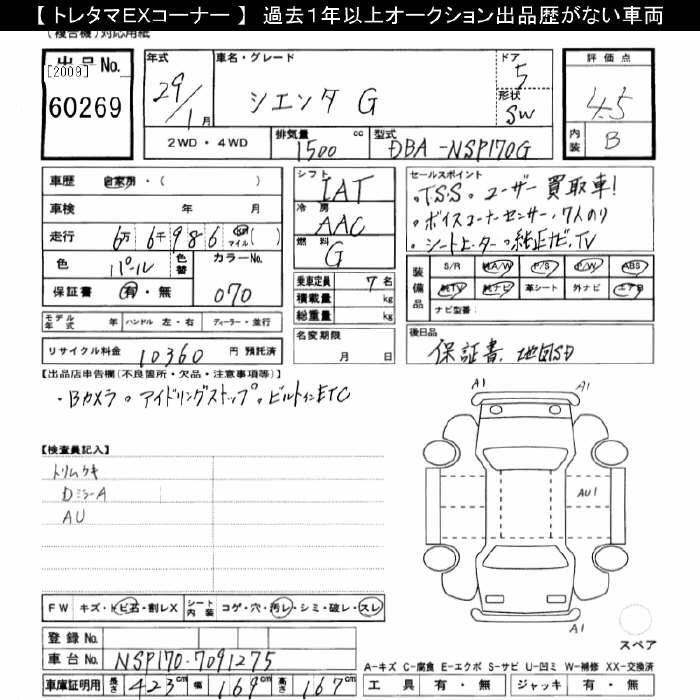 【 トレタマEXコーナー 】 過去1年以上オークション出品歴がない車両
(複合機)対応用紙
出品No.
[2009]
60269
年式
29/1月
車名・グレード
シエンタ G
ドア
5
形状
SW
評価点
4.5
内装
B
2WD・4WD
排気量
1500 cc
型式
DBA-NSP170G
車歴 自家用・( )
車検 年 月
走行 6万6千986 km マイル( )
色 パール 色替 カラーNo.
070
保証書 有・無
モデル年式 年 ハンドル 左・右 ディーラー・並行
リサイクル料金 10360 円 預託済
シフト
IAT
冷房
AAC
燃料
G
乗車定員 7名
積載量 kg
総重量 kg
名変期限
月 日
セールスポイント
。TSS。ユーザー買取車!
。ボイスコーナーセンサー・7人のり
。シートヒーター。純正ナビ、TV
装備品
S/R AA/W P/S P/W ABS
純TV 純ナビ 革シート 外ナビ エアB
ナビ型番:
後日品
保証書、地図SD
【出品店申告欄(不良箇所・欠品・注意事項等)】
・Bカメラ。アイドリングストップ。ビルトインETC
【検査員記入】
トリムウキ
DミラーA
AU
A1
A1
AU1
A1
スペア
FW キズ・トビ石・割レX シート内装 コゲ・穴・汚レ・シミ・破レ・スレ
登録No.
車台No. NSP170-7091275
車庫証明用 長さ 423 cm 幅 169 cm 高さ 167 cm
A-キズ C-腐食 E-エクボ S-サビ U-凹ミ W-補修 XX-交換済
工具 有・無 ジャッキ 有・無